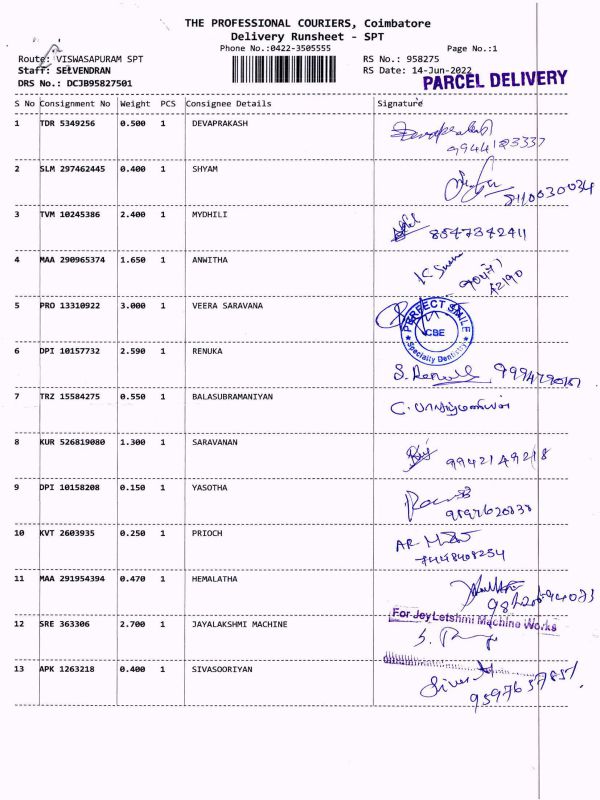 THE PROFESSIONAL COURIERS, Coimbatore
Delivery Runsheet - SPT
Phone No.:0422-3505555 Page No.:1
Route: VISWASAPURAM SPT RS No.: 958275
Staff: SELVENDRAN RS Date: 14-Jun-2022
PARCEL DELIVERY
DRS No.: DCJB95827501
S No Consignment No Weight PCS Consignee Details Signature
1 TDR 5349256 0.500 1 DEVAPRAKASH
Devaprakash
9944123337
2 SLM 297462445 0.400 1 SHYAM
8110030034
3 TVM 10245386 2.400 1 MYDHILI
8547342411
4 MAA 290965374 1.650 1 ANWITHA
5 PRO 13310922 3.000 1 VEERA SARAVANA
PERFECT SMILE
CBE
Specialty Dentistry
6 DPI 10157732 2.590 1 RENUKA
7 TRZ 15584275 0.550 1 BALASUBRAMANIYAN
8 KUR 526819080 1.300 1 SARAVANAN
9942149218
9 DPI 10158208 0.150 1 YASOTHA
10 KVT 2603935 0.250 1 PRIOCH
7448408254
11 MAA 291954394 0.470 1 HEMALATHA
For Jey Letshmi Machine Works
12 SRE 363306 2.700 1 JAYALAKSHMI MACHINE
13 APK 1263218 0.400 1 SIVASOORIYAN
9597657857